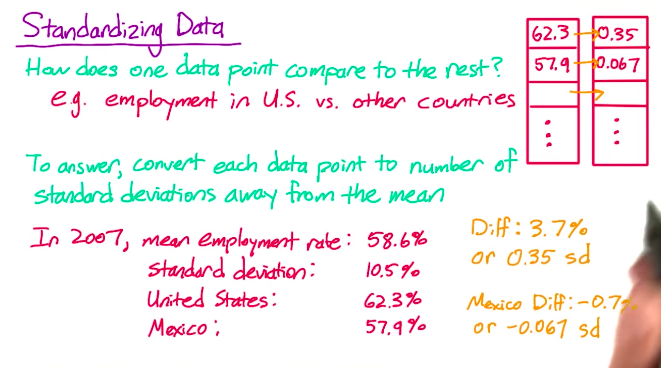 Standardizing Data
How does one data point compare to the rest?
e.g. employment in U.S. vs. other countries
62.3 → 0.35
57.9 → 0.067
→
To answer, convert each data point to number of
standard deviations away from the mean
In 2007, mean employment rate: 58.6%
standard deviation: 10.5%
United States: 62.3%
Mexico: 57.9%
Diff: 3.7%
or 0.35 sd
Mexico Diff: -0.7%
or -0.067 sd